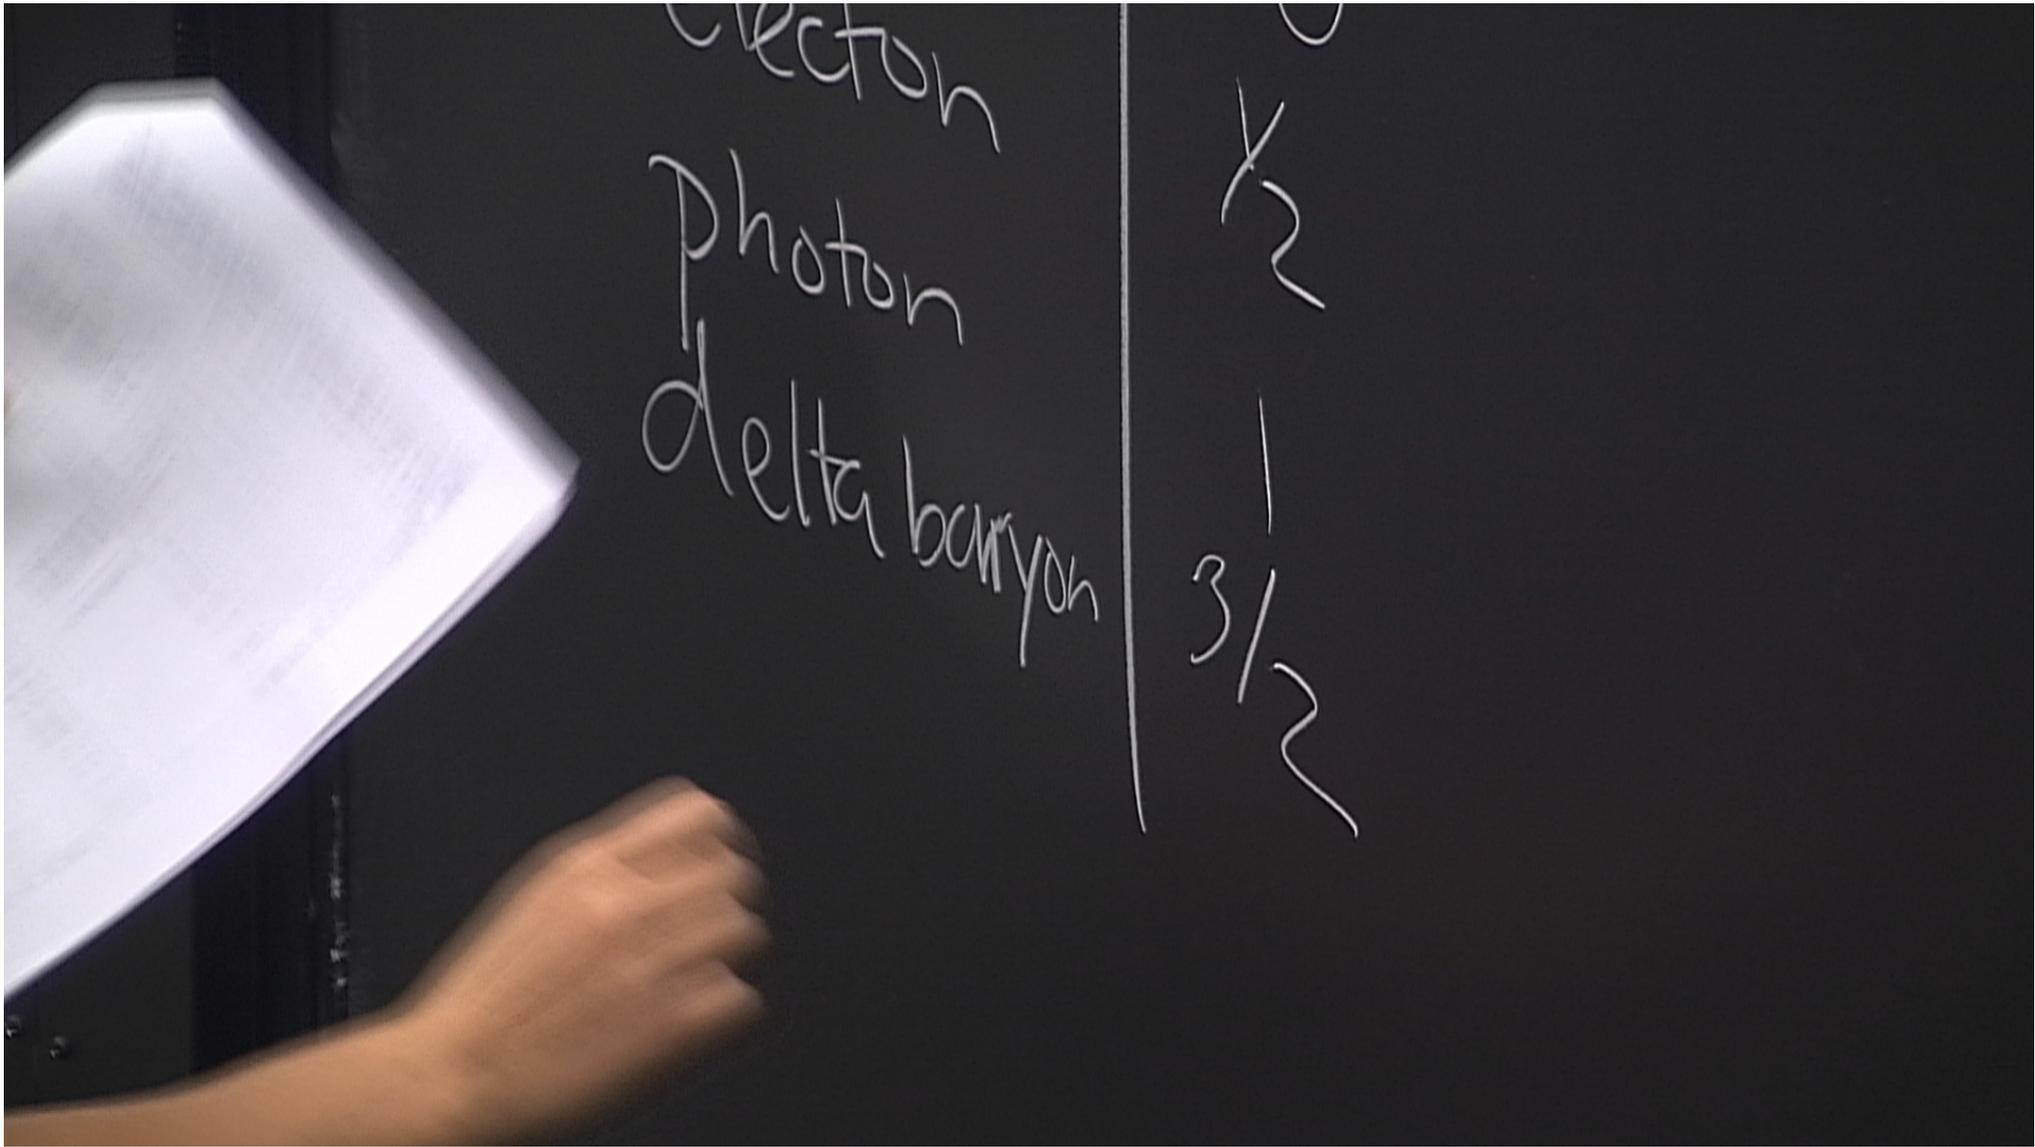 electon 1/2
photon 1
delta baryon 3/2